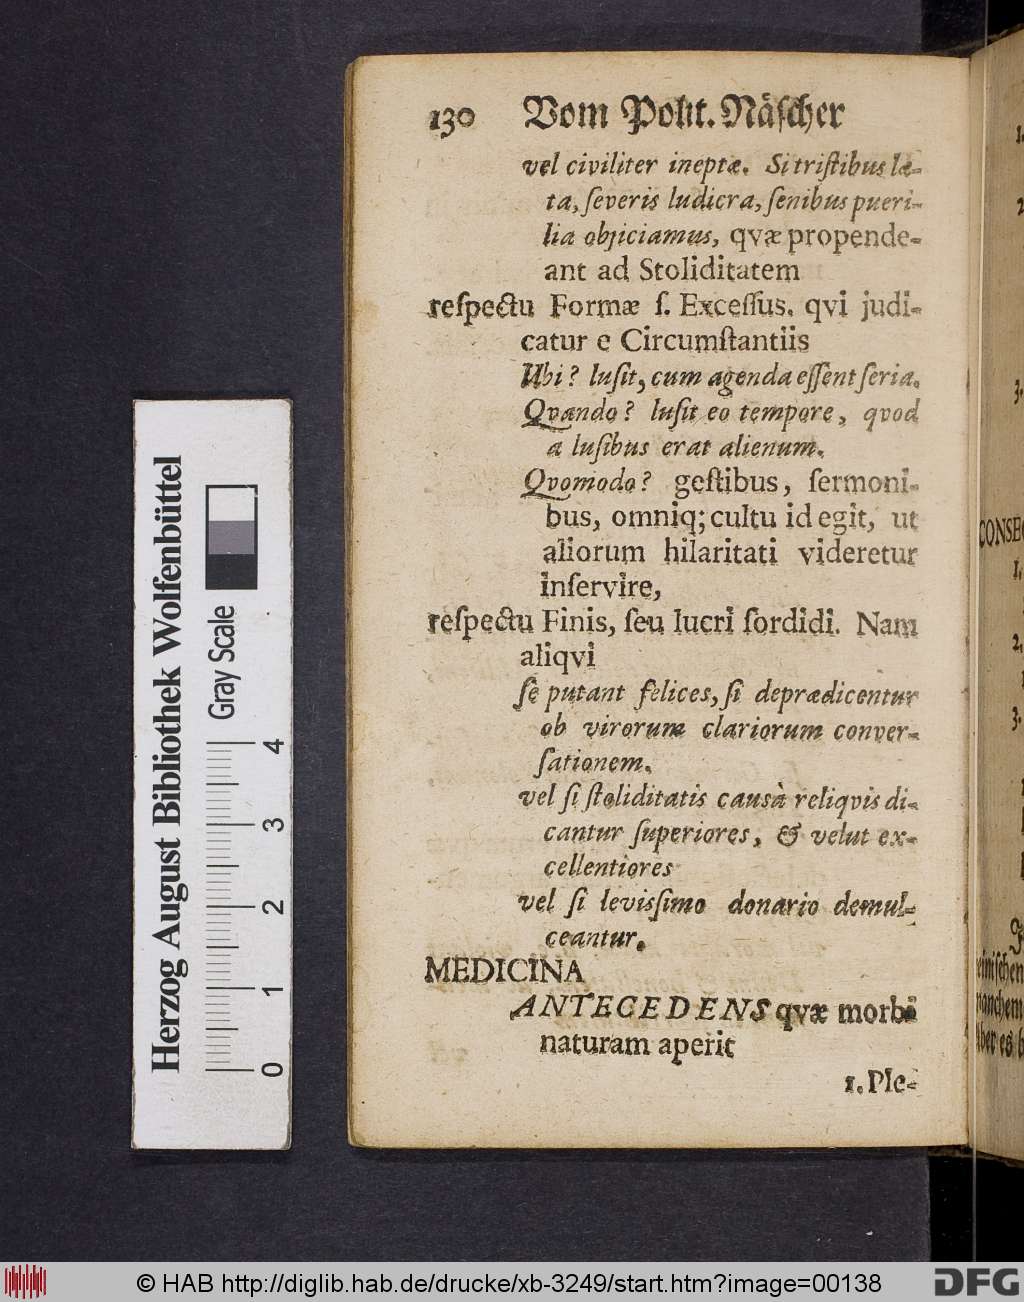 130 Vom Polit. Näſcher
vel civiliter ineptæ. Si triſtibus læ-
ta, ſeveris ludicra, ſenibus pueri-
lia objiciamus, qvæ propende-
ant ad Stoliditatem
reſpectu Formæ ſ. Exceſſus. qvi judi-
catur e Circumſtantiis
Ubi? luſit, cum agenda eſſent ſeria.
Qvando? luſit eo tempore, qvod
a luſibus erat alienum.
Qvomodo? geſtibus, ſermoni-
bus, omniq; cultu id egit, ut
aliorum hilaritati videretur
inſervire,
reſpectu Finis, ſeu lucri ſordidi. Nam
aliqvi
ſe putant felices, ſi deprædicentur
ob virorum clariorum conver-
ſationem.
vel ſi ſtoliditatis causà reliqvis di-
cantur ſuperiores, & velut ex-
cellentiores
vel ſi levisſimo donario demul-
ceantur.
MEDICINA
ANTECEDENS qvæ morbi
naturam aperit
1. Ple-
CONSEC
1.
2.
3.
einiſchen
manchem
Aber es b
Herzog August Bibliothek Wolfenbüttel
Gray Scale
0 1 2 3 4
© HAB http://diglib.hab.de/drucke/xb-3249/start.htm?image=00138
DFG